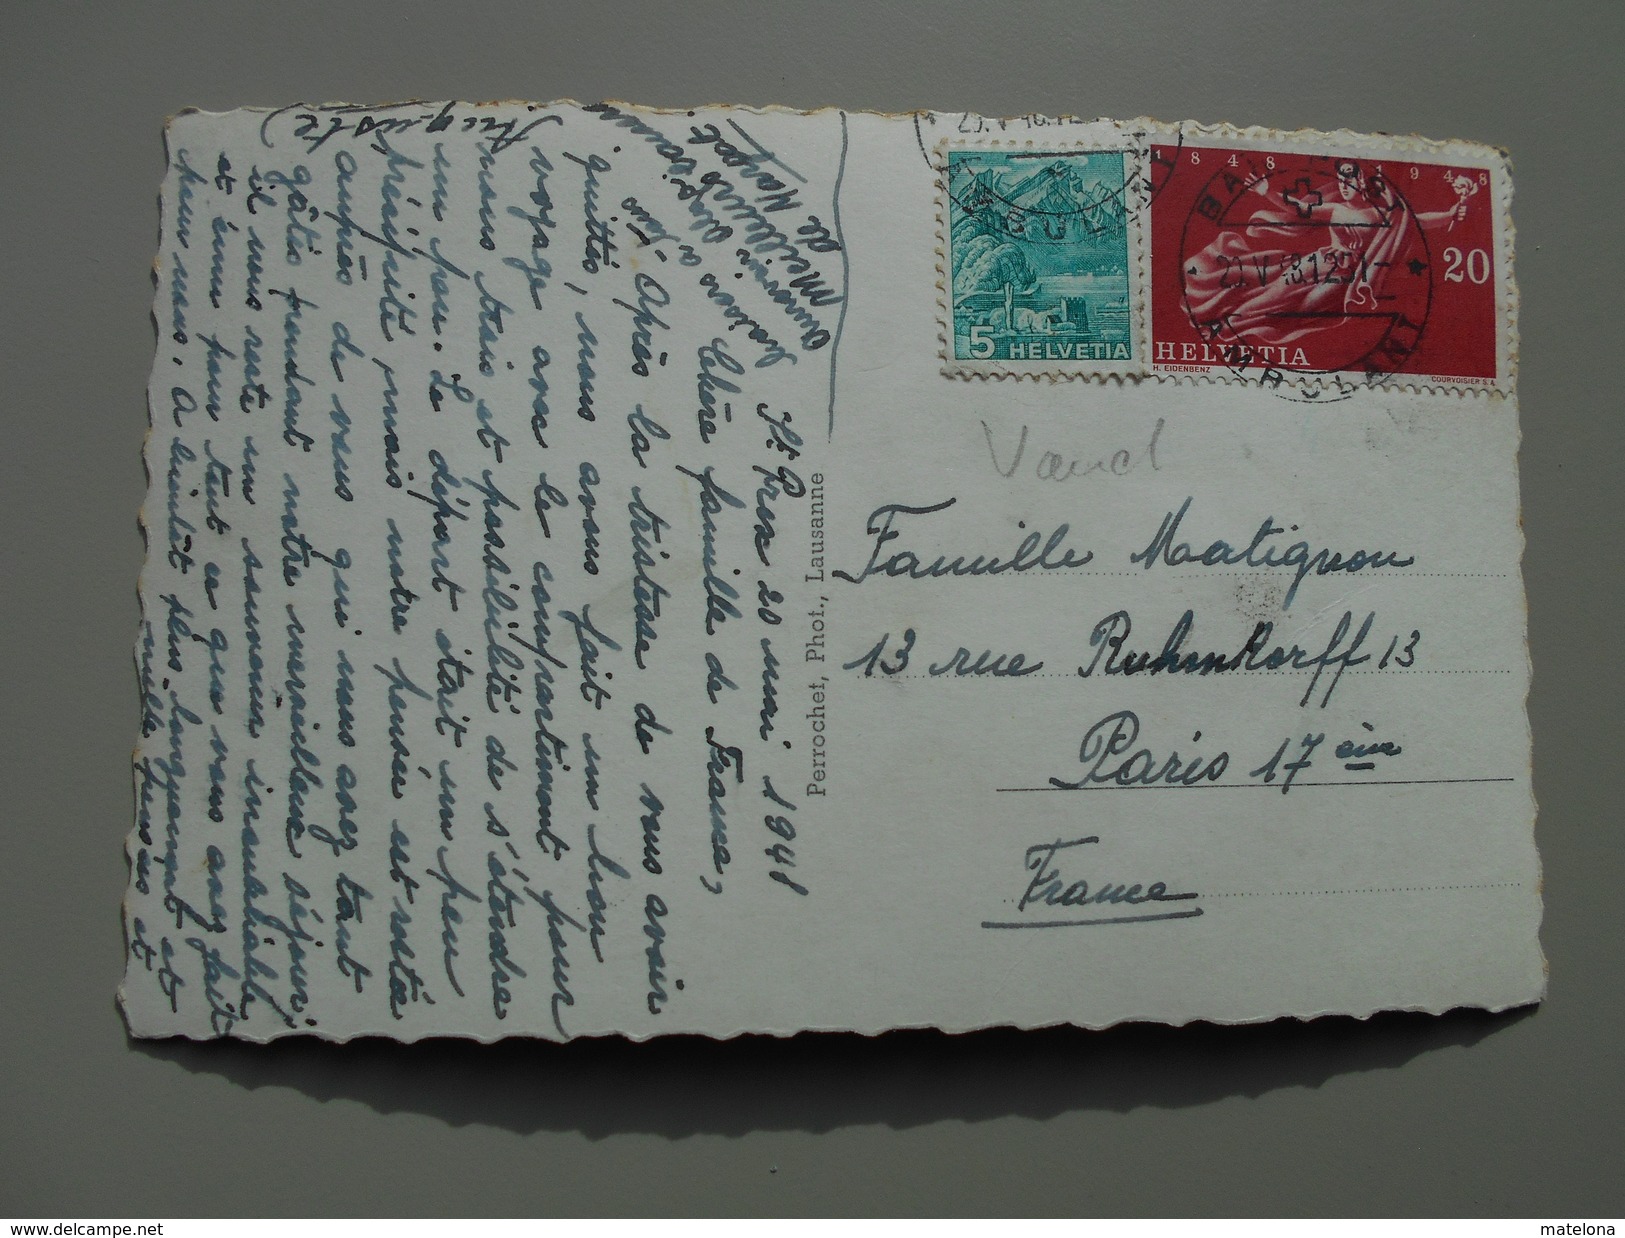 St Prex 20 mai 1948
Chère famille de France,
Après la tristesse de vous avoir
quittés, nous avons fait un bon
voyage avec le compartiment pour
nous trois et possibilité de s'étendre
un peu. Le départ était un peu
précipité, mais notre pensée est restée
auprès de vous qui nous avez tant
gâtés pendant notre merveilleux séjour.
Il nous reste un souvenir inoubliable
et émue pour tout ce que vous avez fait
pour nous. A bientôt plus longuement et
mille pensées et
Auguste
baisers à tous
Meilleurs
de Margot
Perrochet, Phot., Lausanne
Vaud
Famille Matignon
13 rue Ruhmkorff 13
Paris 17 ème
France
5 HELVETIA
1848 1948
20
HELVETIA
H. EIDENBENZ
COURVOISIER S.A.
BAHNPOST
20.V.48.12
AMBULANT
delcampe.net
matelona